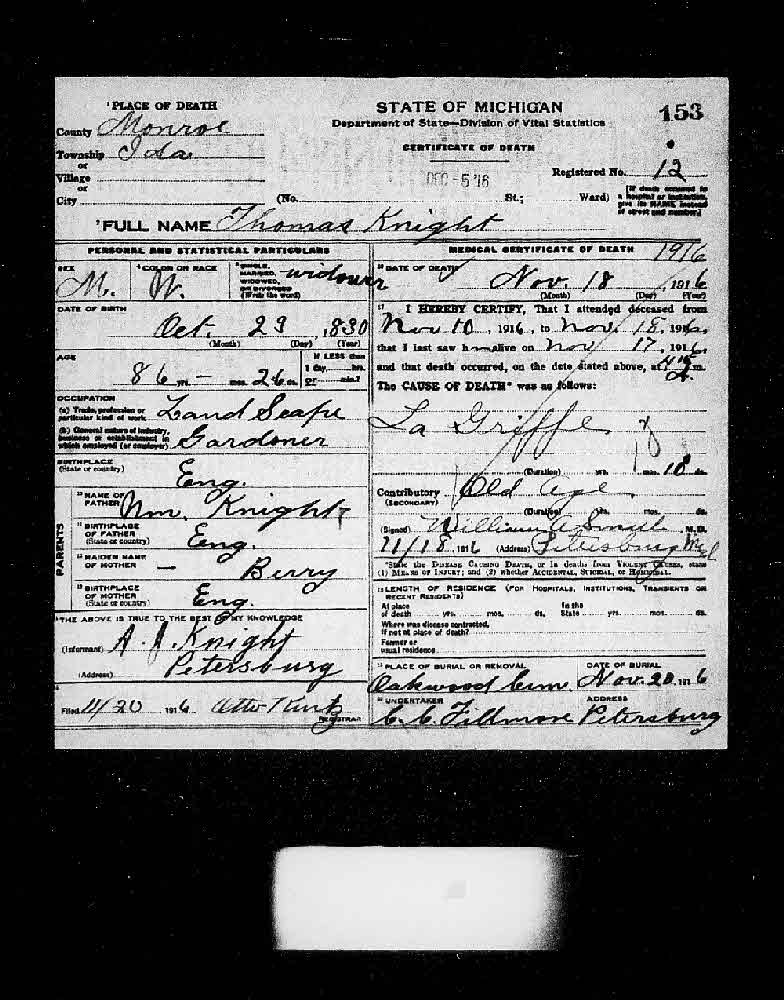 PLACE OF DEATH
County Monroe
Township Ida
or
Village
or
City
STATE OF MICHIGAN
Department of State—Division of Vital Statistics
CERTIFICATE OF DEATH
153
DEC -5 '16
Registered No. 12
(No. St.; Ward)
[If death occurred in a hospital or institution give its NAME instead of street and number.]
FULL NAME Thomas Knight
PERSONAL AND STATISTICAL PARTICULARS
SEX M.
COLOR OR RACE W.
SINGLE, MARRIED, WIDOWED, OR DIVORCED (Write the word) widower
DATE OF BIRTH
Oct. 23, 1830
(Month) (Day) (Year)
AGE
86 yrs. - mos. 26 ds.
If LESS than 1 day, hrs. or min.?
OCCUPATION
(a) Trade, profession or particular kind of work Land Scape
(b) General nature of industry, business or establishment in which employed (or employer) Gardoner
BIRTHPLACE
(State or country) Eng.
PARENTS
NAME OF FATHER Wm. Knight
BIRTHPLACE OF FATHER (State or country) Eng.
MAIDEN NAME OF MOTHER — Berry
BIRTHPLACE OF MOTHER (State or country) Eng.
THE ABOVE IS TRUE TO THE BEST OF MY KNOWLEDGE
(Informant) A. J. Knight
(Address) Petersburg
Filed 11/20 1916 Otto Kurtz
REGISTRAR
MEDICAL CERTIFICATE OF DEATH 1916
DATE OF DEATH
Nov. 18, 1916
(Month) (Day) (Year)
I HEREBY CERTIFY, That I attended deceased from
Nov 10, 1916, to Nov. 18, 1916,
that I last saw him alive on Nov 17, 1916,
and that death occurred, on the date stated above, at A. m.
The CAUSE OF DEATH* was as follows:
La Griffe
(Duration) yrs. mos. 10 ds.
Contributory Old Age
(SECONDARY)
(Duration) yrs. mos. ds.
(Signed) William A M.D.
11/18, 1916 (Address) Petersburg
*State the DISEASE CAUSING DEATH, or in deaths from VIOLENT CAUSES, state
(1) MEANS OF INJURY; and (2) whether ACCIDENTAL, SUICIDAL, or HOMICIDAL.
LENGTH OF RESIDENCE (FOR HOSPITALS, INSTITUTIONS, TRANSIENTS OR RECENT RESIDENTS)
At place of death yrs. mos. ds. In the State yrs. mos. ds.
Where was disease contracted,
If not at place of death?
Former or
usual residence
PLACE OF BURIAL OR REMOVAL DATE OF BURIAL
Oakwood Cem. Nov. 20, 1916
UNDERTAKER ADDRESS
C. C. Fillmore Petersburg